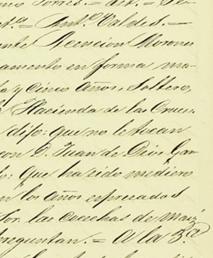 Torres. = act. = Se-
Ant.o Valdes. =
ente Acencion Moreno
amento en forma ma-
y cinco años, soltero,
Hacienda de las Cruc
dijo: que no le tocan
con D. Juan de Dios Gar
o: que ha sido mediero
en los años espresados
por las cosechas de maiz
preguntan. = A la 3.a